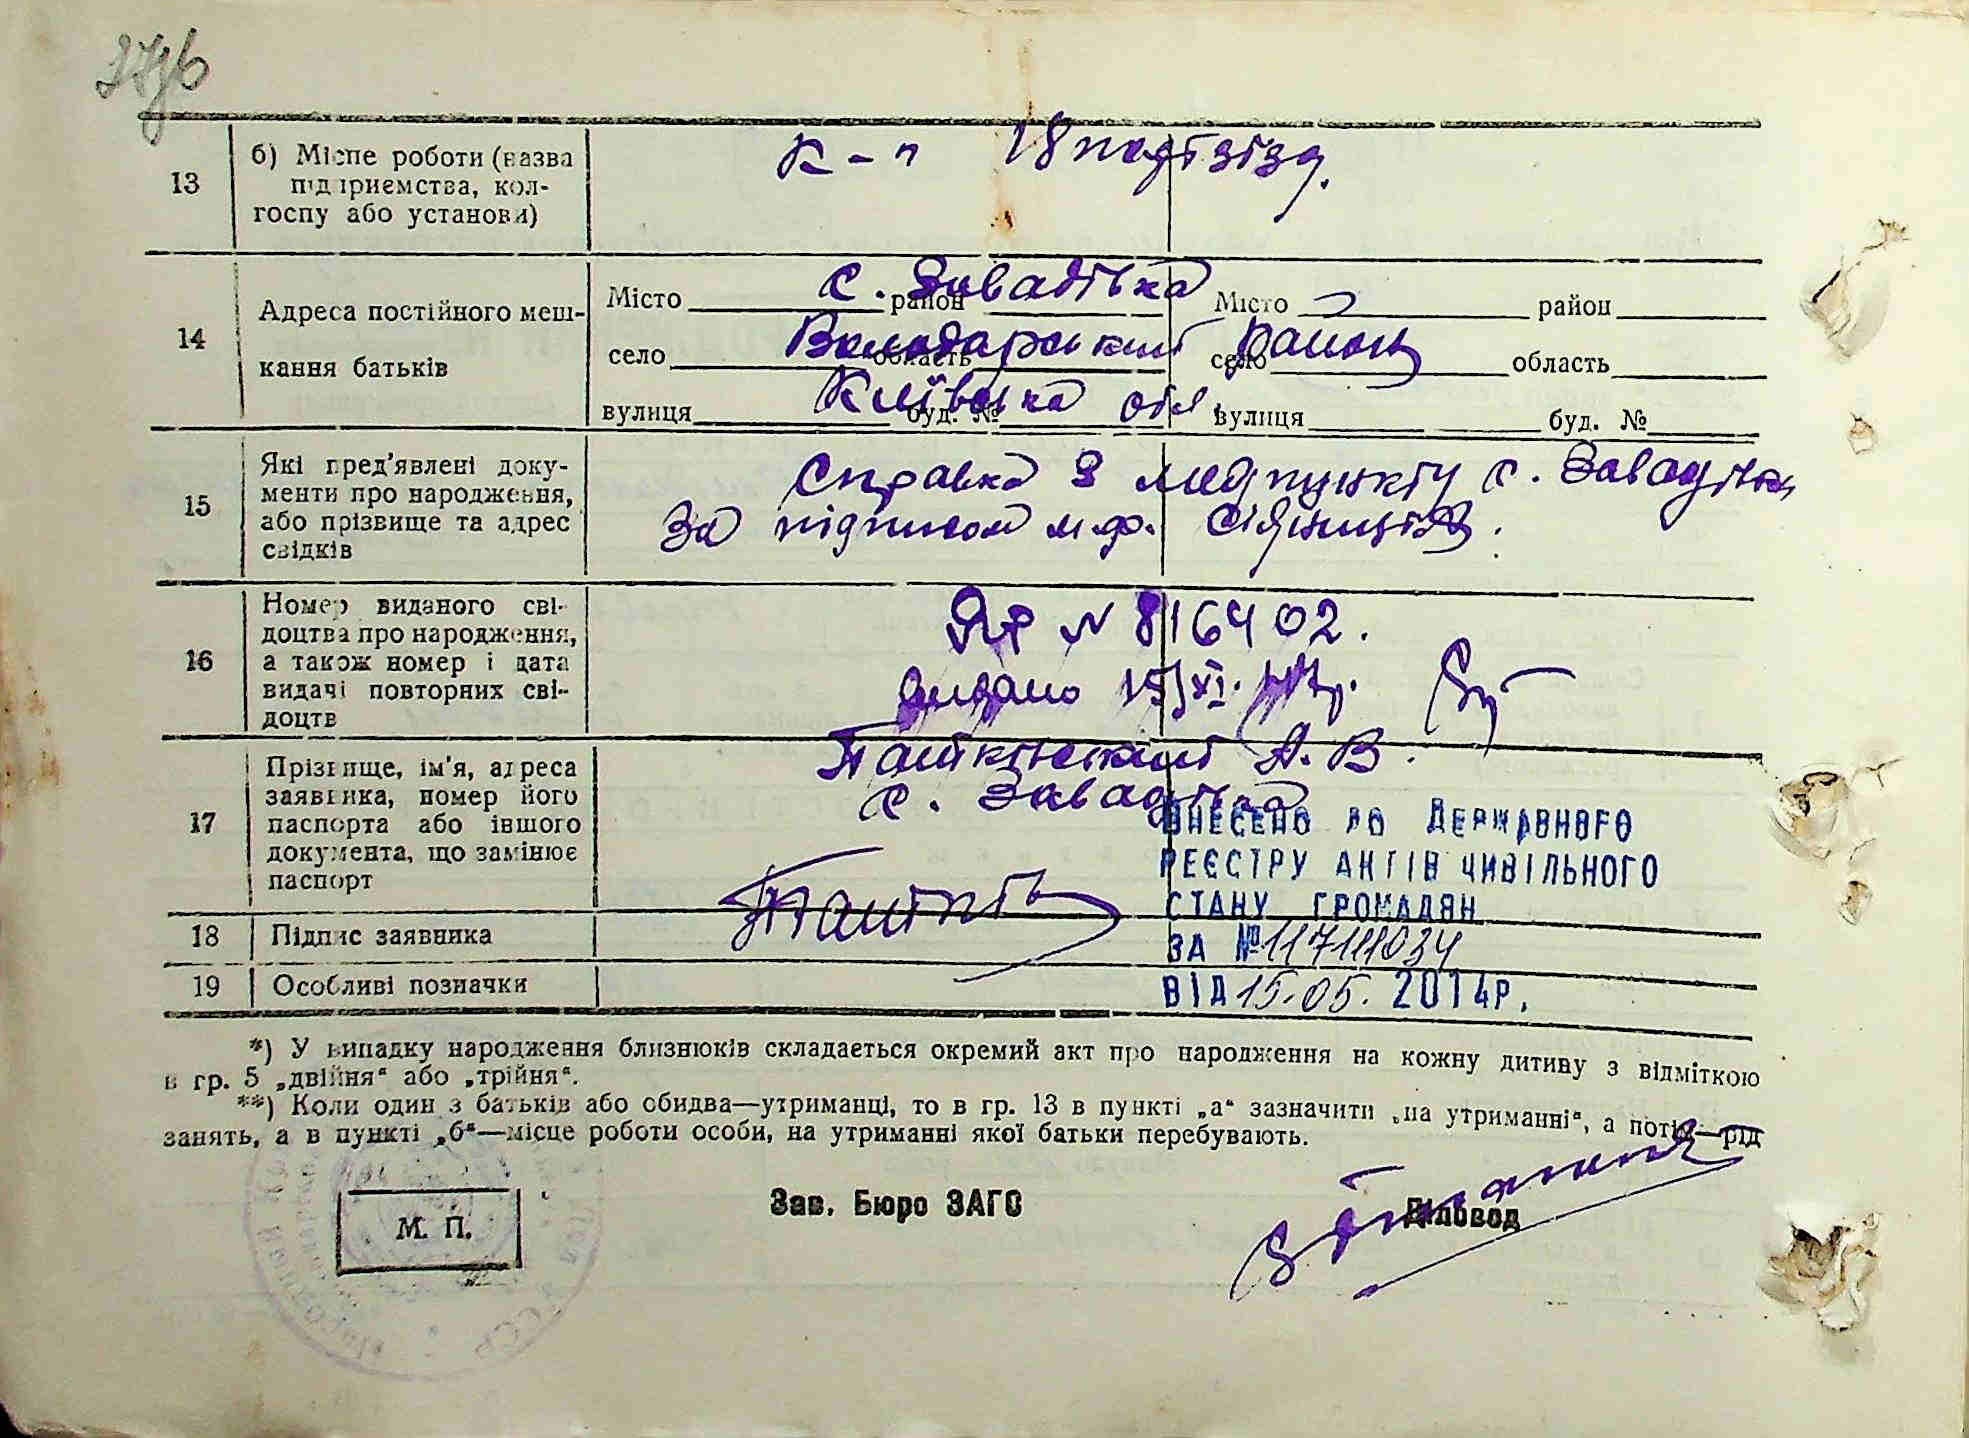 13
б) Місце роботи (назва
підприємства, кол-
госпу або установи)
к-п 18 партзізд.
14
Адреса постійного меш-
кання батьків
Місто район Місто район
с. Завадівка
село область село область
Володарський район
вулиця буд. № вулиця буд. №
Київська обл.
15
Які пред'явлені доку-
менти про народження,
або прізвище та адрес
свідків
Справка з медпункту с. Завадівка
за підписом
16
Номер виданого сві-
доцтва про народження,
а також номер і дата
видачі повторних сві-
доцтв
N 816402.
видано 15/XI.
17
Прізвище, ім'я, адреса
заявника, номер його
паспорта або іншого
документа, що замінює
паспорт
А. В.
с. Завадівка
ВНЕСЕНО ДО ДЕРЖАВНОГО
РЕЄСТРУ АКТІВ ЦИВІЛЬНОГО
СТАНУ ГРОМАДЯН
ЗА №
ВІД 15.05. 2014р.
18
Підпис заявника
19
Особливі позначки
*) У випадку народження близнюків складається окремий акт про народження на кожну дитину з відміткою
в гр. 5 „двійня“ або „трійня“.
**) Коли один з батьків або обидва—утриманці, то в гр. 13 в пункті „а“ зазначити „на утриманні“, а потім—рід
занять, а в пункті „б“—місце роботи особи, на утриманні якої батьки перебувають.
М. П.
Зав. Бюро ЗАГС
Діловод